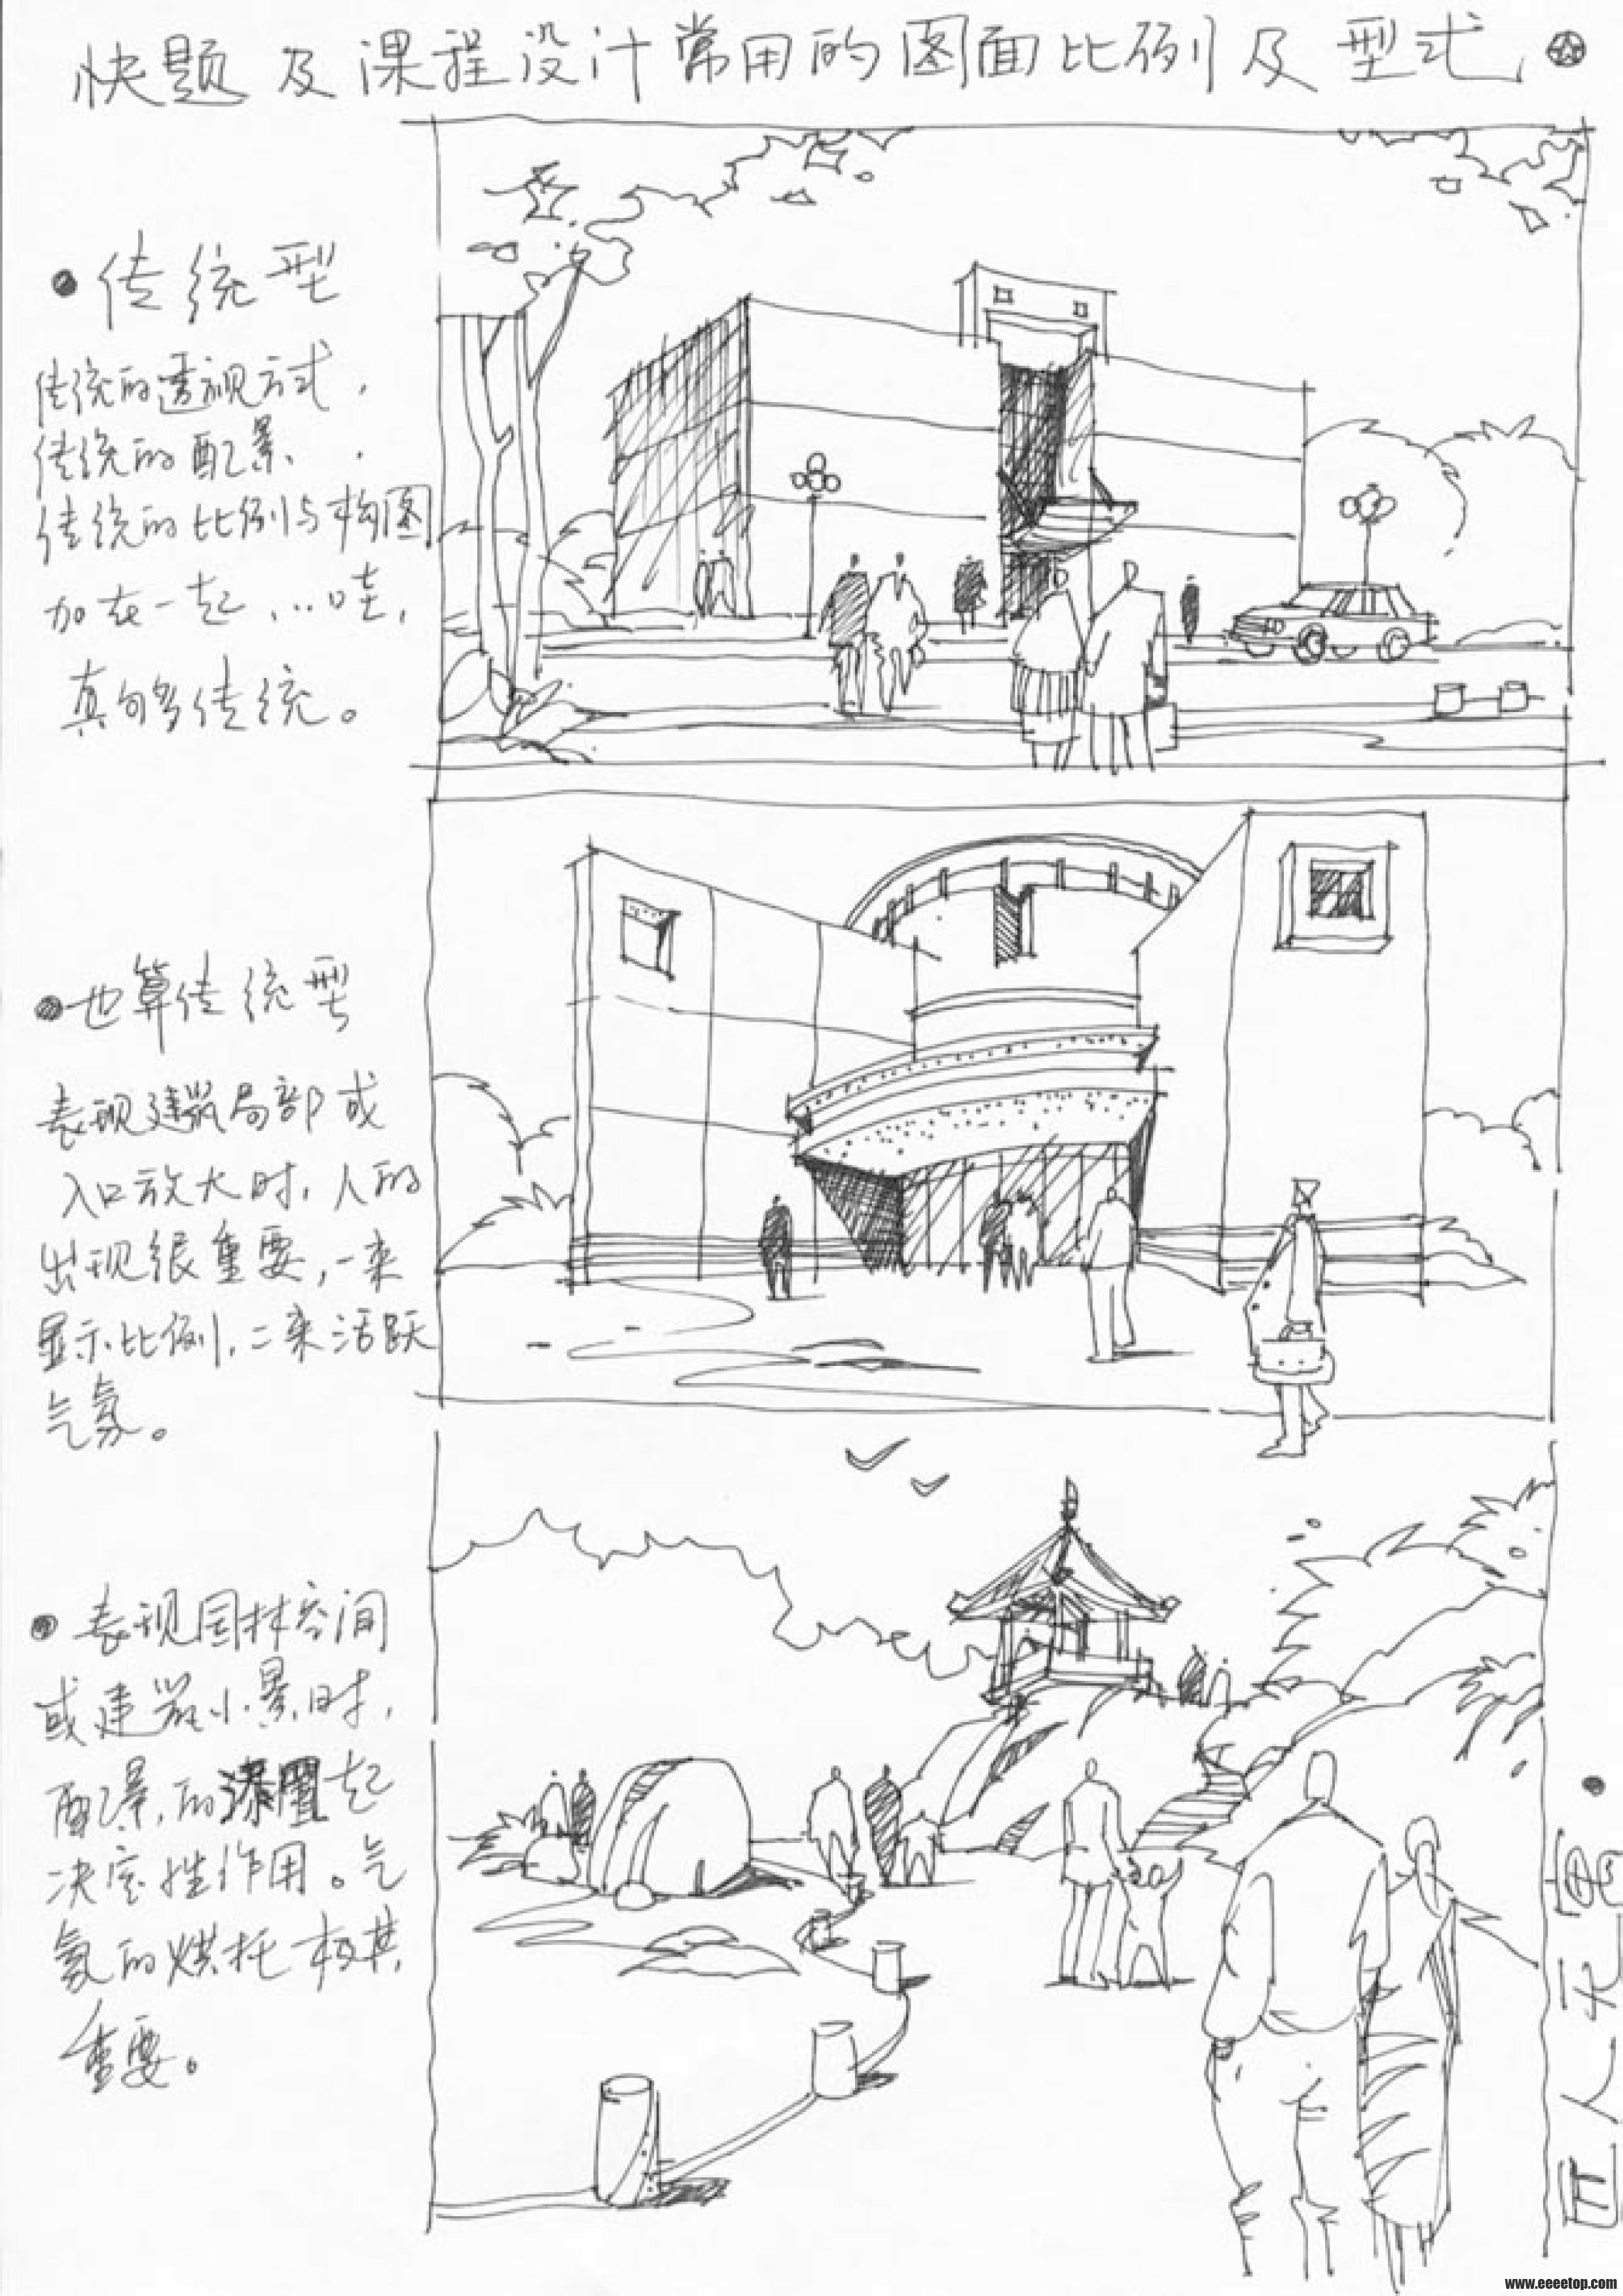 快题及课程设计常用的图面比例及型式
传统型
传统的透视方式，
传统的配景、
传统的比例与构图
加在一起，…哇，
真够传统。
也算传统型
表现建筑局部或
入口放大时，人的
出现很重要，一来
显示比例，二来活跃
气氛。
表现园林空间
或建筑小景时，
配景的瀑置起
决定性作用。气
氛的烘托极其
重要。
四人无图
www.eeeetop.com